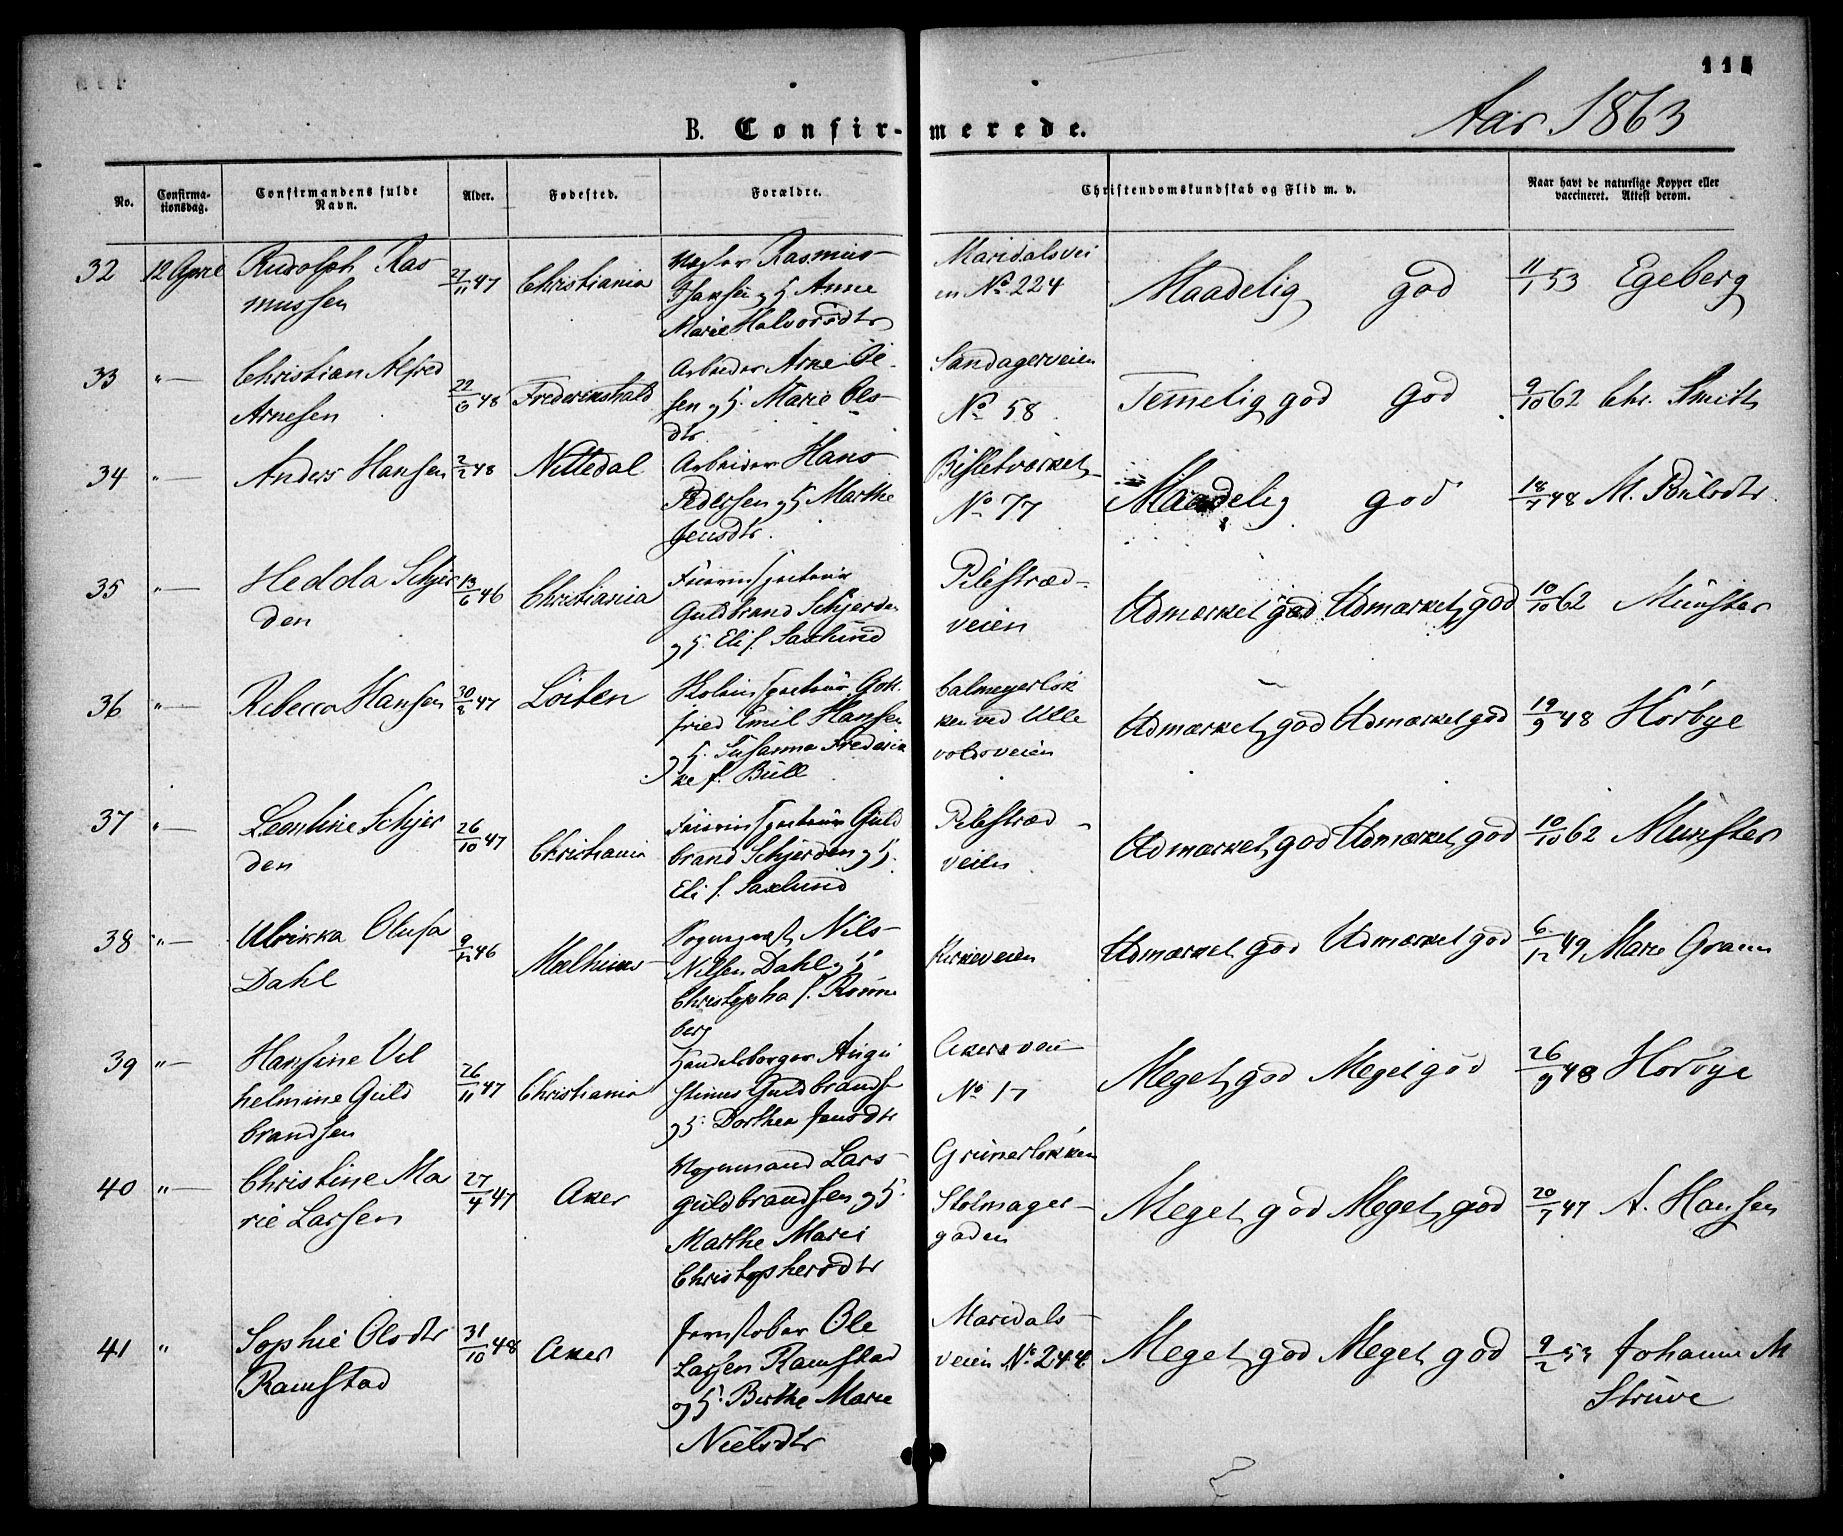 115
Aar 1863
B. Confirmerede.
No. Confirmationsdag. Confirmandens fulde Navn. Alder. Fødested. Forældre. Christendomskundskab og Flid m. v. Naar havt de naturlige Kopper eller vaccineret. Attest derom.
32 12 April Rudolph Ras
mussen
27/11 47 Christiania
Rasmus
Isaksen og H. Anne
Marie Halvorsdtr
Maridalsvei
en No 224
Maadelig god
11/1 53 Egeberg
33 "— Christian Alfred
Arnesen
22/6 48 Frederikshald
Arbeider Arne Ol-
sen og H. Marie Ols-
dtr.
Sandagerveien
No 58
Temelig god god
9/10 62 Chr. Smith
34 "— Anders Hansen 2/2 48 Nittedal
Arbeider Hans
Pedersen og H Marthe
Jensdtr.
Bisletværket
No 77
Maadelig god
18/7 48 M. Poulsdtr.
35 "— Hedda Schjer
den
13/6 46 Christiania
Guldbrand Schjerden
og H. Eli f. Saxlund
Pilestræd-
veien
Udmærket god Udmærket god
10/10 62 Münster
36 "— Rebecca Hansen 30/8 47 Löiten
Skoleinspecteur Gott-
fried Emil Hansen
og H. Susanna Frederik
ke f. Bull
Calmeyerløk
ken ved Ulle
volsveien
Udmærket god Udmærket god
19/9 48 Hörbye
37 "— Leontine Schjer
den
26/10 47 Christiania
Guld
brand Schjerden og H.
Eli f. Saxlund
Pilestræd
veien
Udmærket god Udmærket god
10/10 62 Münster
38 "— Ulrikka Olufa
Dahl
9/12 46
Nils
Nilsen Dahl og H.
Christopha f. Rønne
berg
Kirkeveien
Udmærket god Udmærket god
6/12 49 Marie Gram
39 "— Hansine Vil
helmine Guld
brandsen
26/11 47 Christiania
Handelsborger Augu
stinus Guldbrands-
og H. Dorthea Jensdtr
Akersvei
No 17
Meget god Meget god
26/9 48 Hörbye
40 "— Christine Ma
rie Larsen
27/4 47 Aker
Lars
Guldbrandsen og H.
Marthe Marie
Christophersdtr
Grünerløkken
Skomager-
gaden
Meget god Meget god
20/7 47 A. Hansen
41 " Sophie Olsdtr
Ramstad
31/10 48 Aker
Jernstøber Ole
Larsen Ramstad
og H. Birthe Marie
Nielsdtr
Maridals-
veien No 244
Meget god Meget god
9/2 53 Johanne M
Struve